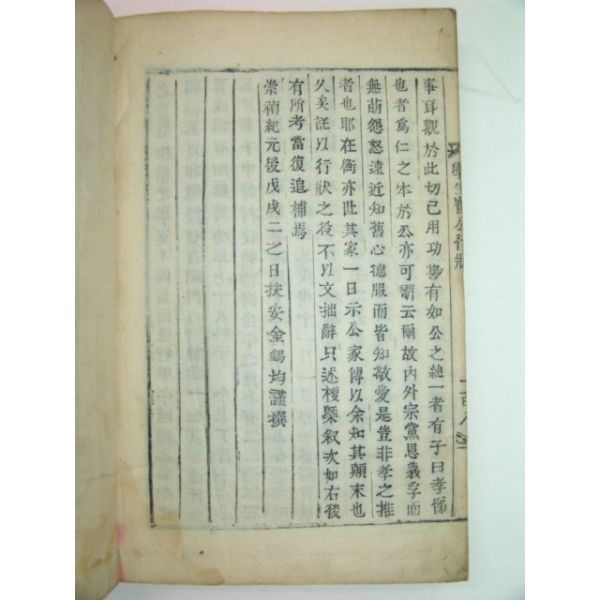 學生崔公行狀
事耳觀於此切己用功勘有如公之純一者有子曰孝悌
也者爲仁之本於公亦可謂云爾故內外宗黨恩義孚而
無萌怨怒遠近知舊心德服而皆知敬愛是豈非孝之推
者也耶在衡亦世其家一日示公家傳以余知其顚末也
久矣託以行狀之役不以文拙辭只述梗槩叙次如右後
有所考當復追補焉
崇禎紀元後戊戌二之日扶安金錫均謹撰